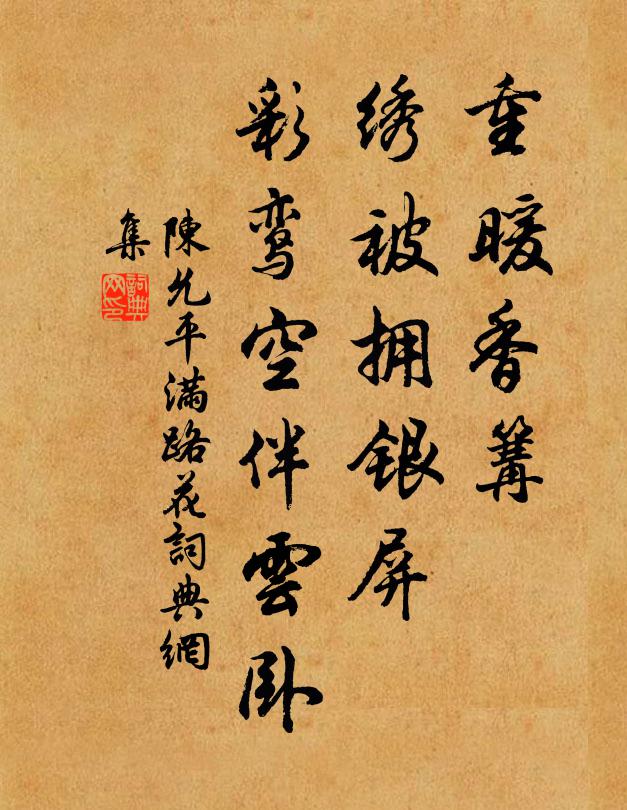 重暖香篝
绣被拥银屏
彩鸾空伴雲卧
陳允平满路花詞典網
集
詞典网印